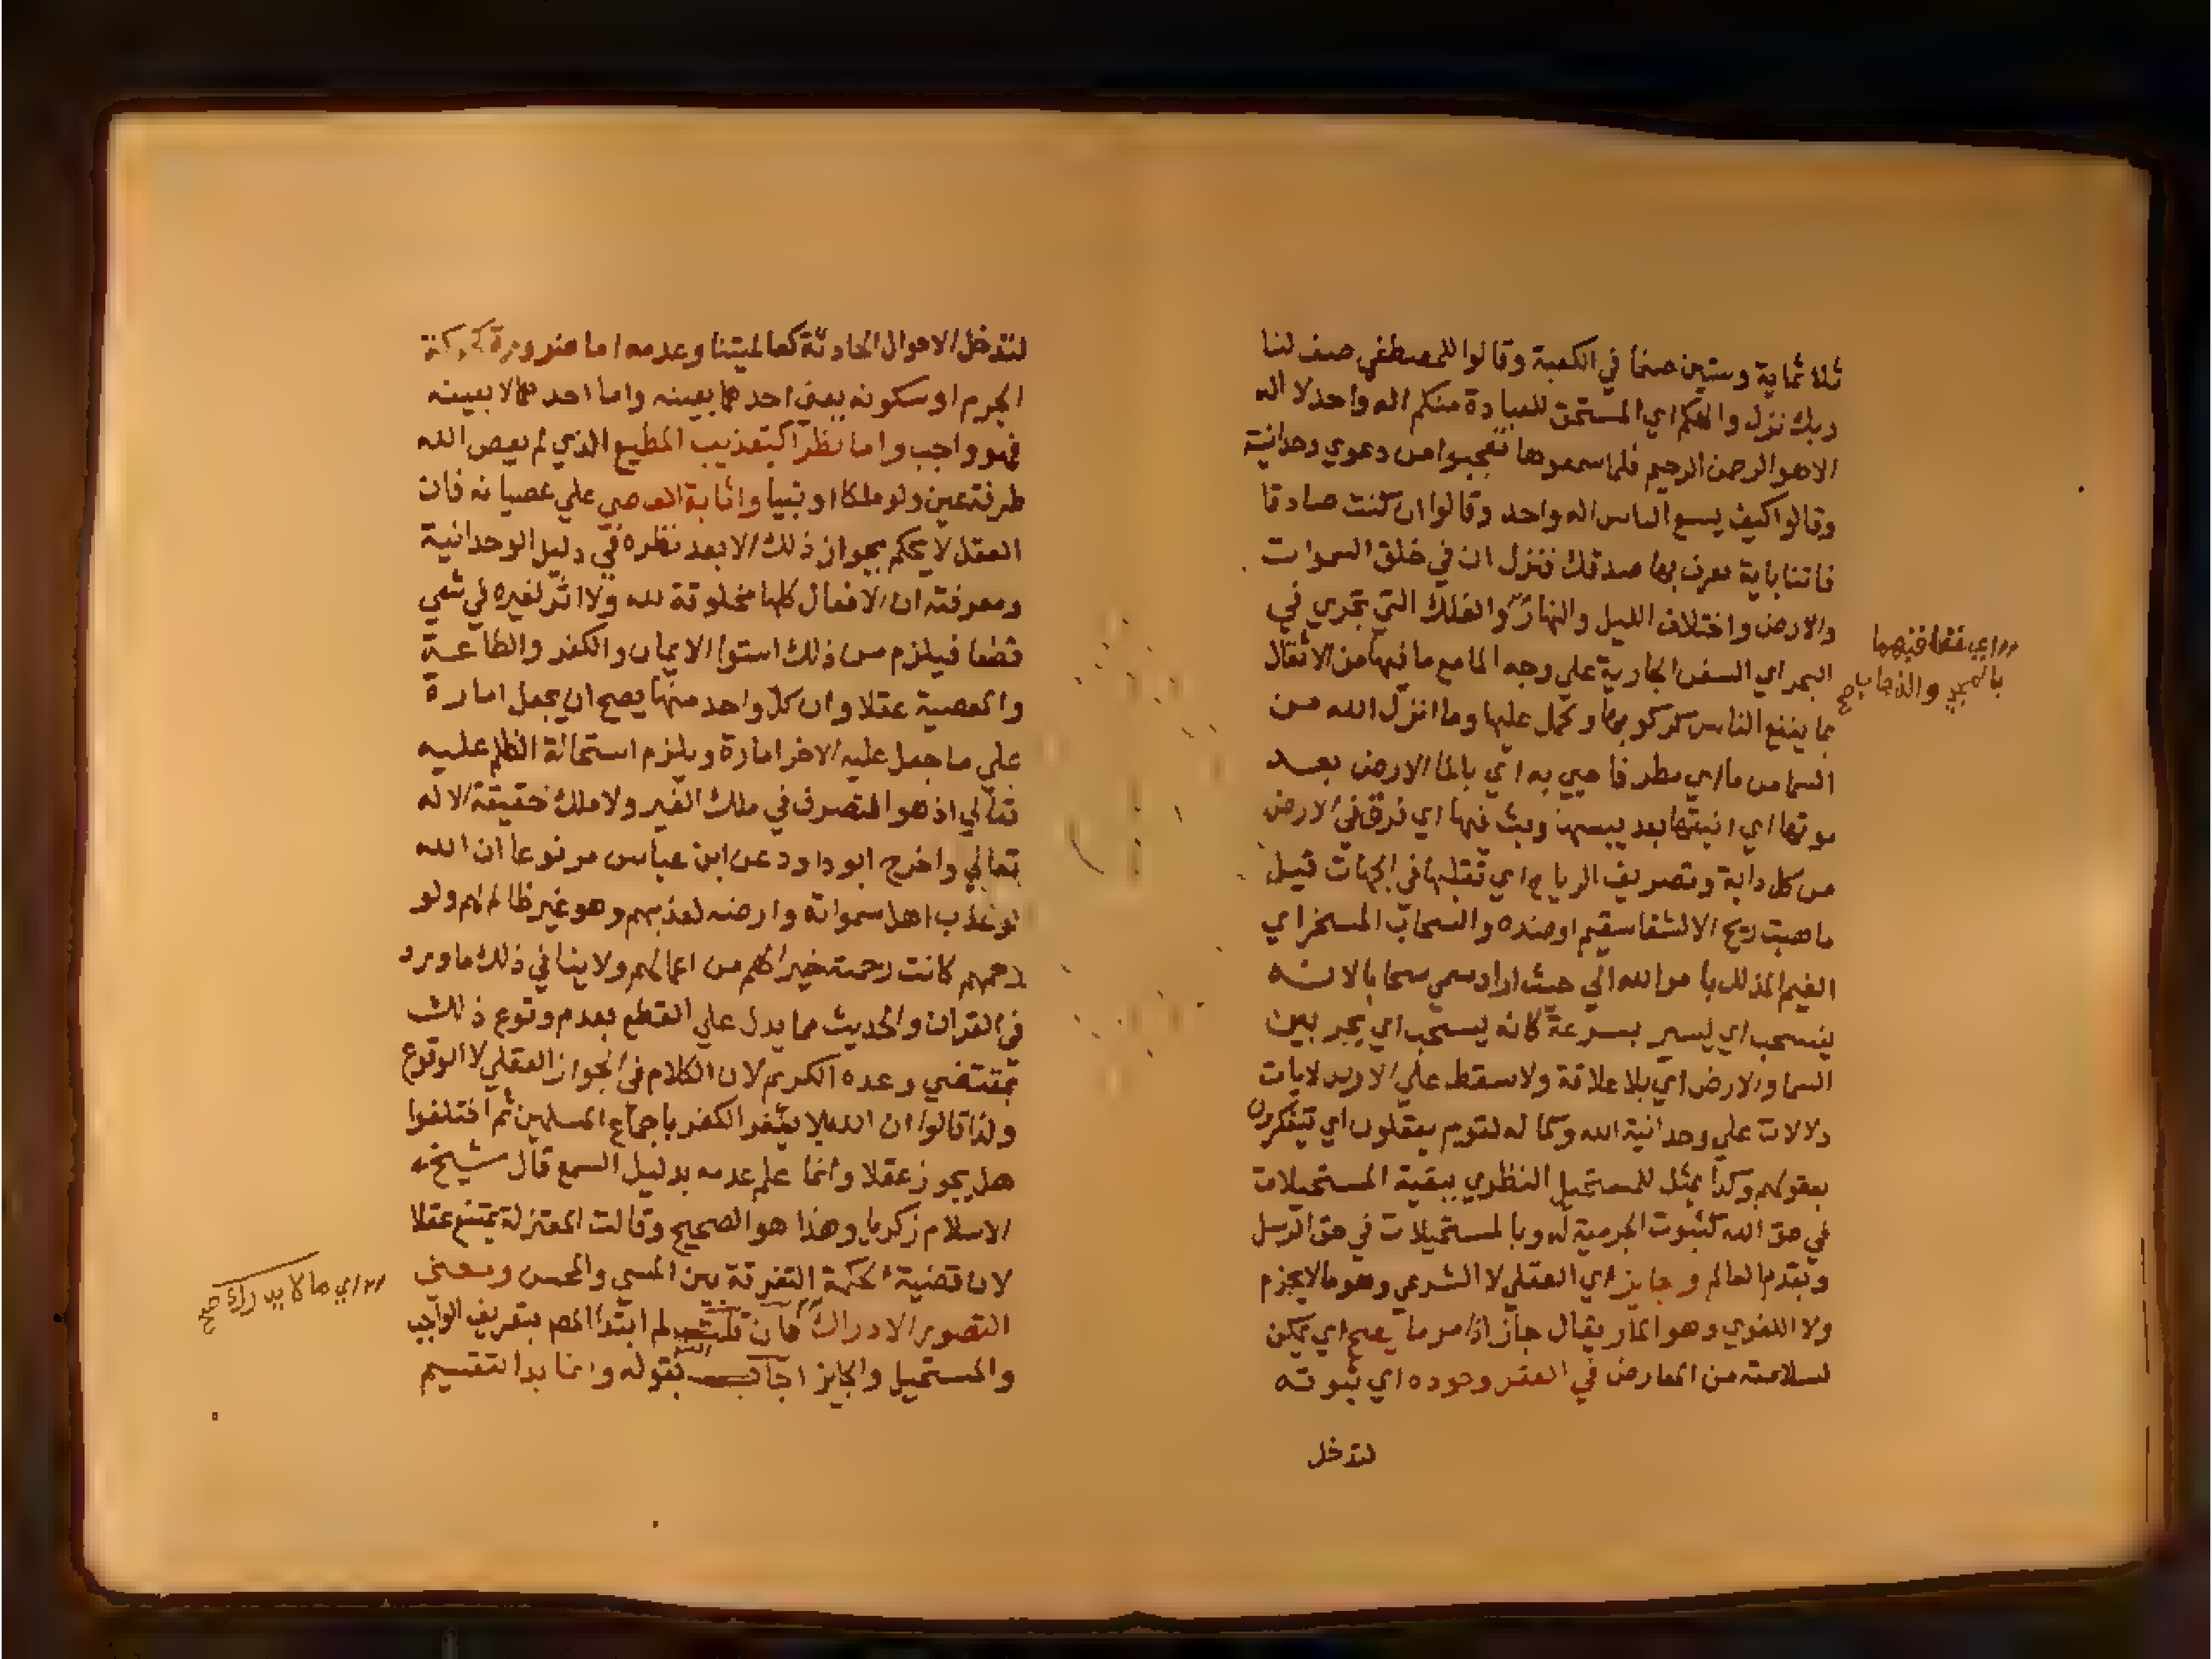 ثلاثماية وستين صنما في الكعبة وقالوا للمصطفي صف لنا
ربك نزل والهكم اي المستحق للعبادة منكم اله واحد لا اله
الا هو الرحمن الرحيم فلما سمعوها تعجبوا من دعوي وحدانية
وقالوا كيف يسع الناس اله واحد وقالوا ان كنت صادقا
فاتنا باية نعرف بها صدقك فنزل ان في خلق السموات
والارض واختلاف الليل والنهار والفلك التي تجري في
البحر اي السفن الجارية علي وجه الما مع ما فيها من الاثقال
بما ينفع الناس كركوبها وتحمل عليها وما انزل الله من
السما من ما اي مطر فاحيي به اي بالما الارض بعد
موتها اي انبتها بعد يبسها وبث فيها اي فرق في الارض
من كل دابة وتصريف الرياح اي تقلبها في الجهات قيل
ما هبت ريح الا لشفا سقيم او ضده والسحاب المسخر اي
الغيم المذلل بامر الله الي حيث اراد سمي سحابا لانه
ينسحب اي يسير بسرعة كانه يسحب اي يجر بين
السما والارض اي بلا علاقة ولا سقط علي لايات
دلالات علي وحدانية الله وكماله لقوم يعقلون اي يتفكرون
بعقولهم وكذا يمثل للمستحيل النظري ببقية المستحيلات
في حق الله كثبوت الجرمية له وبالمستحيلات في حق الرسل
وبقدم العالم وجايز اي العقلي لا الشرعي وهو ما لا يجزم
ولا اللغوي وهو المار يقال جاز اذا مر ما يصح اي يمكن
لسلامته من المعارض في العقل وجوده اي ثبوته
لتدخل
اي فقط فيهما
والذهاب صح
لتدخل الاحوال الحادثة كعالميتنا وعدمه اما ضرورة كحركة
الجرم او سكونه يعني احدهما بعينه واما احدهما لا بعينه
فهو واجب واما نظرا كتعذيب المطيع الذي لم يعص الله
طرفة عين ولو ملكا او نبيا واثابة العاصي علي عصيانه فان
العقل لا يحكم بجواز ذلك الا بعد نظره في دليل الوحدانية
ومعرفته ان الافعال كلها مخلوقة لله ولا اثر لغيره في شي
قطعا فيلزم من ذلك استوا الايمان والكفر والطاعة
والمعصية عقلا وان كل واحد منها يصح ان يجعل امارة
علي ما جعل عليه الاخر امارة ويلزم استحالة الظلم عليه
تعالي اذ هو التصرف في ملك الغير ولا ملك حقيقة الا له
تعالي واخرج ابو داود عن ابن عباس مرفوعا ان الله
لو عذب اهل سمواته وارضه لعذبهم وهو غير ظالم لهم ولو
رحمهم كانت رحمته خيرا لهم من اعمالهم ولا ينافي ذلك ما ورد
في القران والحديث مما يدل علي القطع بعدم وقوع ذلك
بمقتضي وعده الكريم لان الكلام في الجواز العقلي لا الوقوع
ولذا قالوا ان الله لا يغفر الكفر باجماع المسلمين ثم اختلفوا
هل يجوز عقلا وانما علم عدمه بدليل السمع قال شيخ
الاسلام زكريا وهذا هو الصحيح وقالت المعتزلة يمتنع عقلا
لان قضية الحكمة التفرقة بين المسي والمحسن ومعني
التصور الادراك فان قلت لم ابتدا المص بتعريف الواجب
والمستحيل والجايز اجاب بقوله وانما بدا لتقسيم
اي ما لا يدرك صح